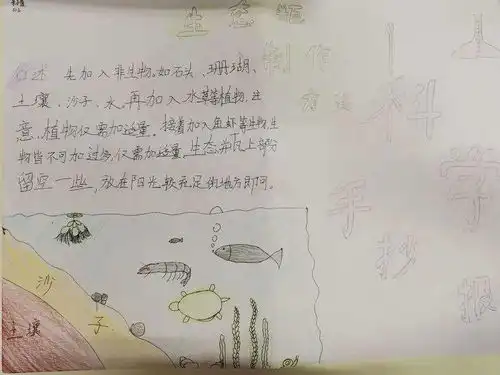 生态瓶
制作
方法
综述 先加入非生物,如石头、珊瑚、
土壤、沙子、水,再加入水草等植物,注
意,植物仅需加适量,接着加入鱼虾等生物,生
物皆不可加过多,仅需加适量,生态瓶瓦上部分
留空一些,放在阳光较充足的地方即可。
科
学
手
抄
报
沙
子
土壤